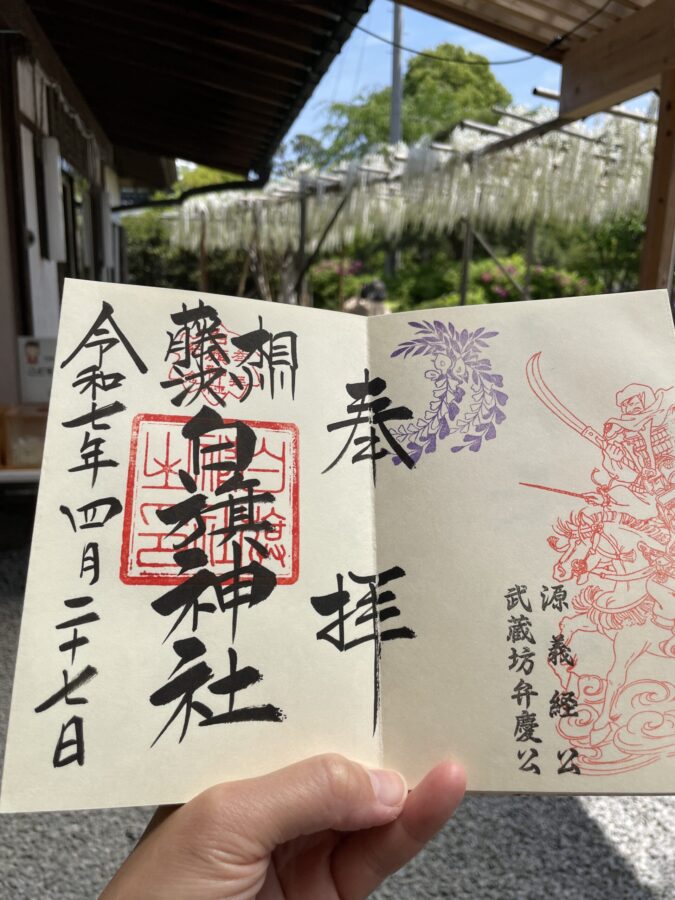 源義経公
武蔵坊弁慶公
奉拝
相州
藤沢
白旗神社
白旗神社之印
令和七年四月二十七日